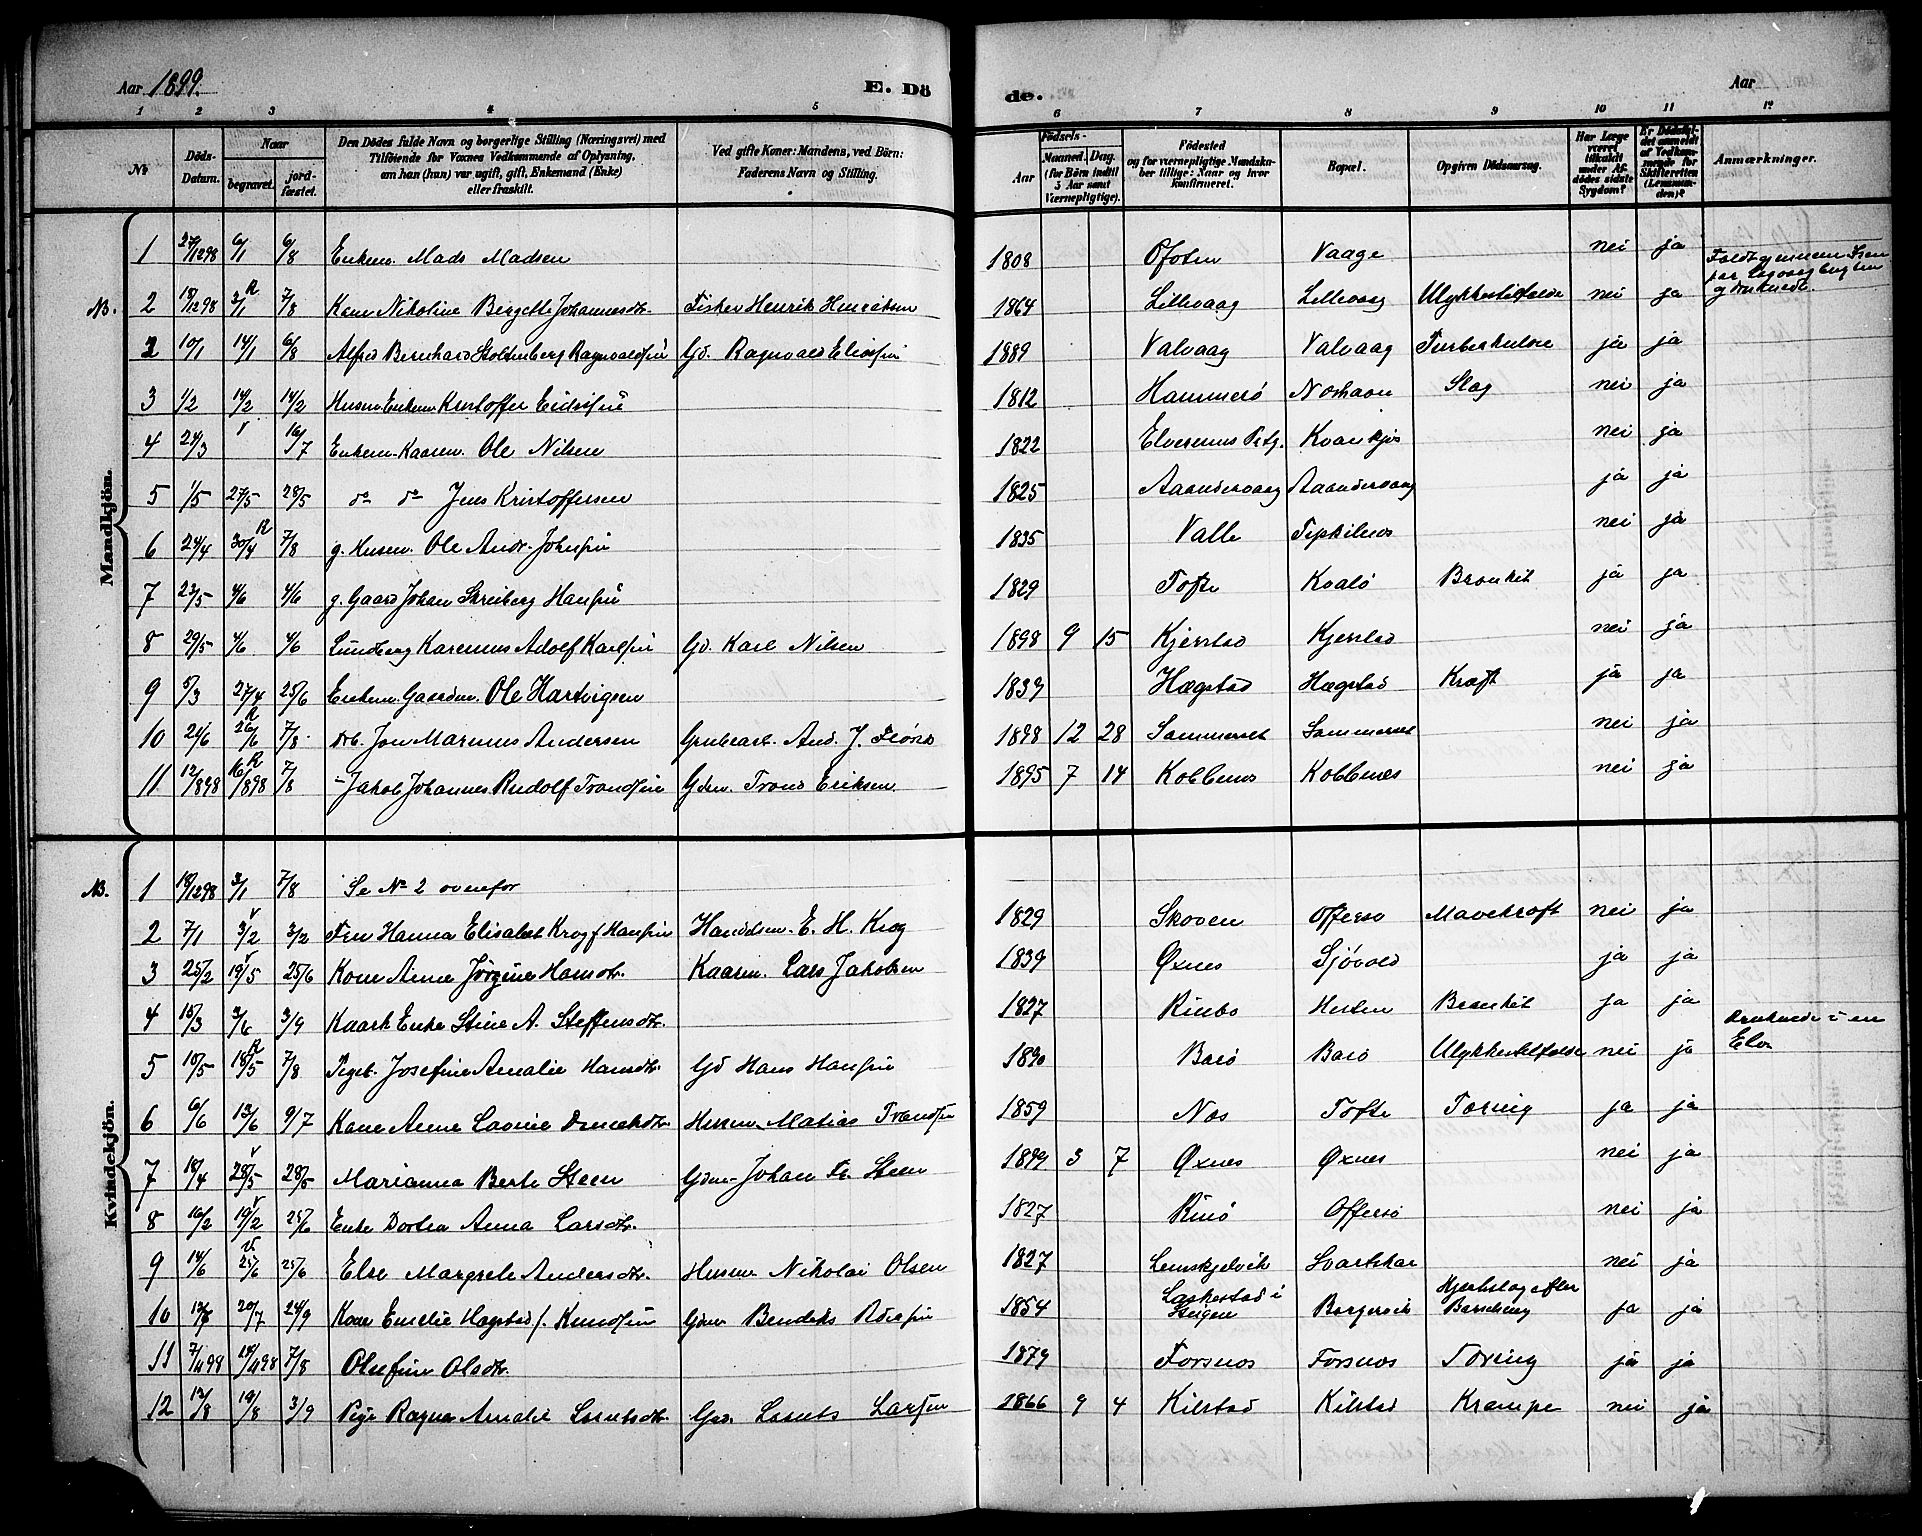 Aar 1899. E. Dö de. Aar
1 2 3 4 5 6 7 8 9 10 11 12
No
Döds-Datum.
Naar begravet. jordfæstet.
Den Dödes fulde Navn og borgerlige Stilling (Næringsvei) med Tilföiende for Voxnes Vedkommende af Oplysning, om han (hun) var ugift, gift, Enkemand (Enke) eller fraskilt.
Ved gifte Koner: Mandens, ved Börn: Faderens Navn og Stilling.
Födsels-
Aar Maaned. Dag. (for Börn indtil 3 Aar samt Værnepligtige).
Födested og for værnepligtige Mandskaber tillige: Naar og hvor konfirmeret.
Bopæl.
Opgiven Dödsaarsag.
Har Læge været tilkaldt under Afdödes sidste Sygdom?
Er Dödsfaldet anmeldt af Vedkommende for Skifteretten (Lensmanden)?
Anmærkninger.
Mandkjön.
1 27/1298 6/1 6/8 Enkem. Mads Madsen 1808 Ofoten Vaage nei ja
NB. 2 18/1298 3/1 R 7/8 Kone Nikoline Bergette Johannesdtr. Fisker Henrik Henriksen 1864 Lillevaag Lillevaag Ulykkestilfælde nei ja Faldt gjennem Isen og druknede.
2 10/1 14/1 6/8 Alfred Bernhard Stoltenberg Ragnvaldsen Gd. Ragnvald Eliasen 1889 Valvaag Valvaag Tuberkulose ja ja
3 1/2 14/2 14/2 Husm. Enkem. Kristoffer 1812 Hammerö Slag nei ja
4 24/3 v 16/7 Enkem. Kaarm. Ole Nilsen 1822 Elverums Prtg. nei ja
5 1/5 27/5 28/5 do do Jens Kristoffersen 1825 Aandervaag Aaandervaag ja ja
6 24/4 30/4 R 7/8 g. Husm. Ole Andr. Johnsen 1835 Valle nei ja
7 23/5 4/6 4/6 g. Gaard Johan Skreiberg Hansen 1829 Tofte Kvalö Bronkit ja ja
8 29/5 4/6 4/6 Lundberg Karenus Adolf Karlsen Gd. Karl Nilsen 1898 9 15 Kjerstad Kjerstad nei ja
9 5/3 27/4 25/6 Enkem. Gaardm. Ole Hartvigsen 1839 Hægstad Hægstad Kræft ja ja
10 21/6 26/6 R 7/8 Drb. Jon Marinus Andersen Grubearb. And. J. 1898 12 28 Sommerset Sommerset nei ja
11 12/898 16/898 R 7/8 - Jakob Johannes Rudolf Trondsen Gdm. Trond Eriksen 1895 7 14 Kobbenes Kobbenes nei ja
Kvindekjön.
NB. 1 18/1298 3/1 7/8 Se No 2 ovenfor
2 7/1 3/2 v 3/2 Fru Hanna Elisabet Krog f. Hansen Handelsm. E. H. Krog 1829 Skoven Offersö Mavekræft nei ja
3 25/2 19/5 v 25/6 Kone Anne Jörgine Hansdtr. Kaarm. Lars Jakobsen 1839 Øxnes Sjövold ja ja
4 15/3 3/6 3/9 Kaark. Enke Stine A. Steffensdtr. 1827 Bronkit ja ja
5 10/5 18/5 R 7/8 Pigeb. Josefine Amalie Hansdtr. Gd Hans Hansen 1890 Barö Barö Ulykkestilfælde nei ja Druknede i en Elv
6 6/6 13/6 9/7 Kone Anne Lovine Husm. Matias Trondsen 1859 Næs Tofte Tæring ja ja
7 18/4 28/5 v 28/5 Marianna Berte Steen Gdm. Johan Fr. Steen 1899 3 7 Øxnes Øxnes nei ja
8 16/2 19/2 v 25/6 Enke Dortea Anna Larsdtr. 1827 Rinö Offersö nei ja
9 14/6 25/6 v. 25/6 Else Margrete Andersdtr. Husm. Nikolai Olsen 1827 Svartskar nei ja
10 13/6 20/7 24/9 Kone Emelie Hagstad f. Knudsen Gdm Bendiks 1854 Laskestad i Steigen Borgervik Hjertslag efter Barseling ja ja
11 7/498 14/498 7/8 Olufine Olsdtr. 1879 Forsnæs Forsnæs Tæring ja ja
12 13/8 19/8 3/9 Pige Ragna Amalie Lorntsdtr. Gd. Lornts Larsen 1866 9 4 Kilstad Kilstad Krampe nei ja